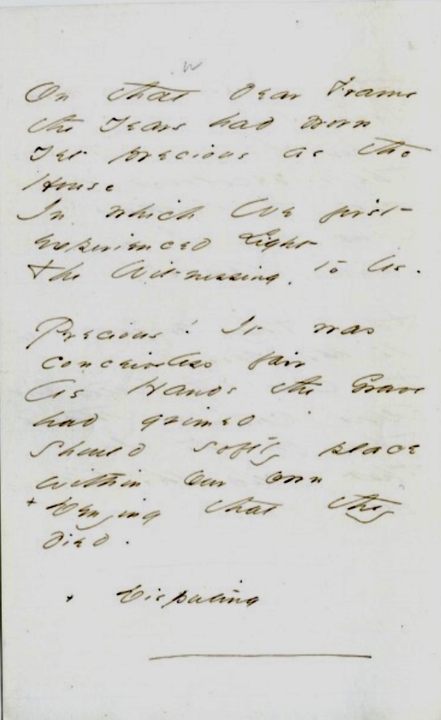 w
On that Dear Frame
the Years had worn
Yet precious as the
House
In which We first
experienced Light
The Witnessing, to Us.
Precious! It was
conceiveless fair
As Hands the Grave
had grimed
Should softly place
within our own
+ Denying that they
died.
+ Disputing